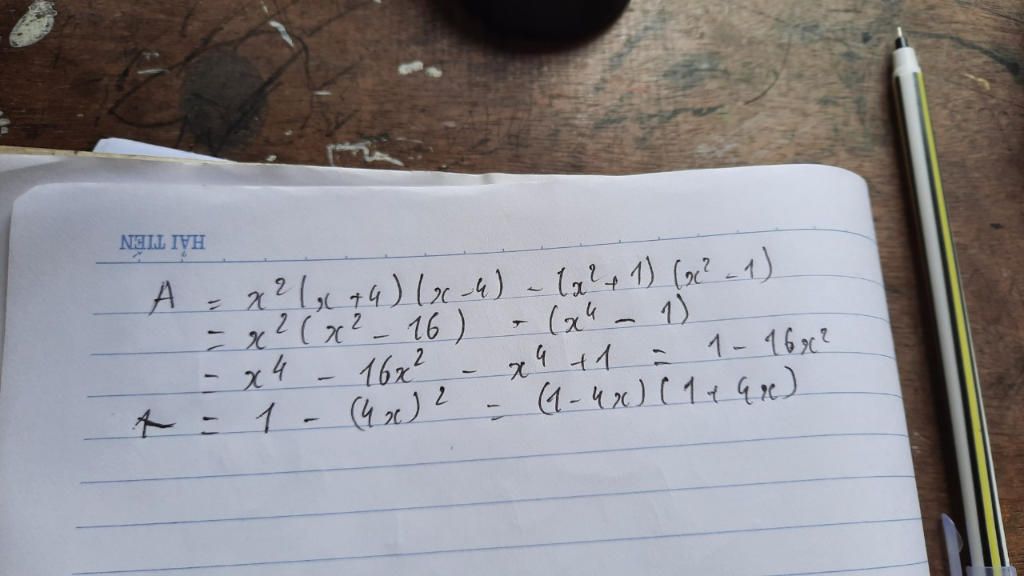 HẢI TIẾN
A = x²(x+4)(x-4) - (x²+1)(x²-1)
= x²(x² - 16) - (x⁴ - 1)
= x⁴ - 16x² - x⁴ + 1 = 1 - 16x²
A = 1 - (4x)² = (1-4x)(1+4x)